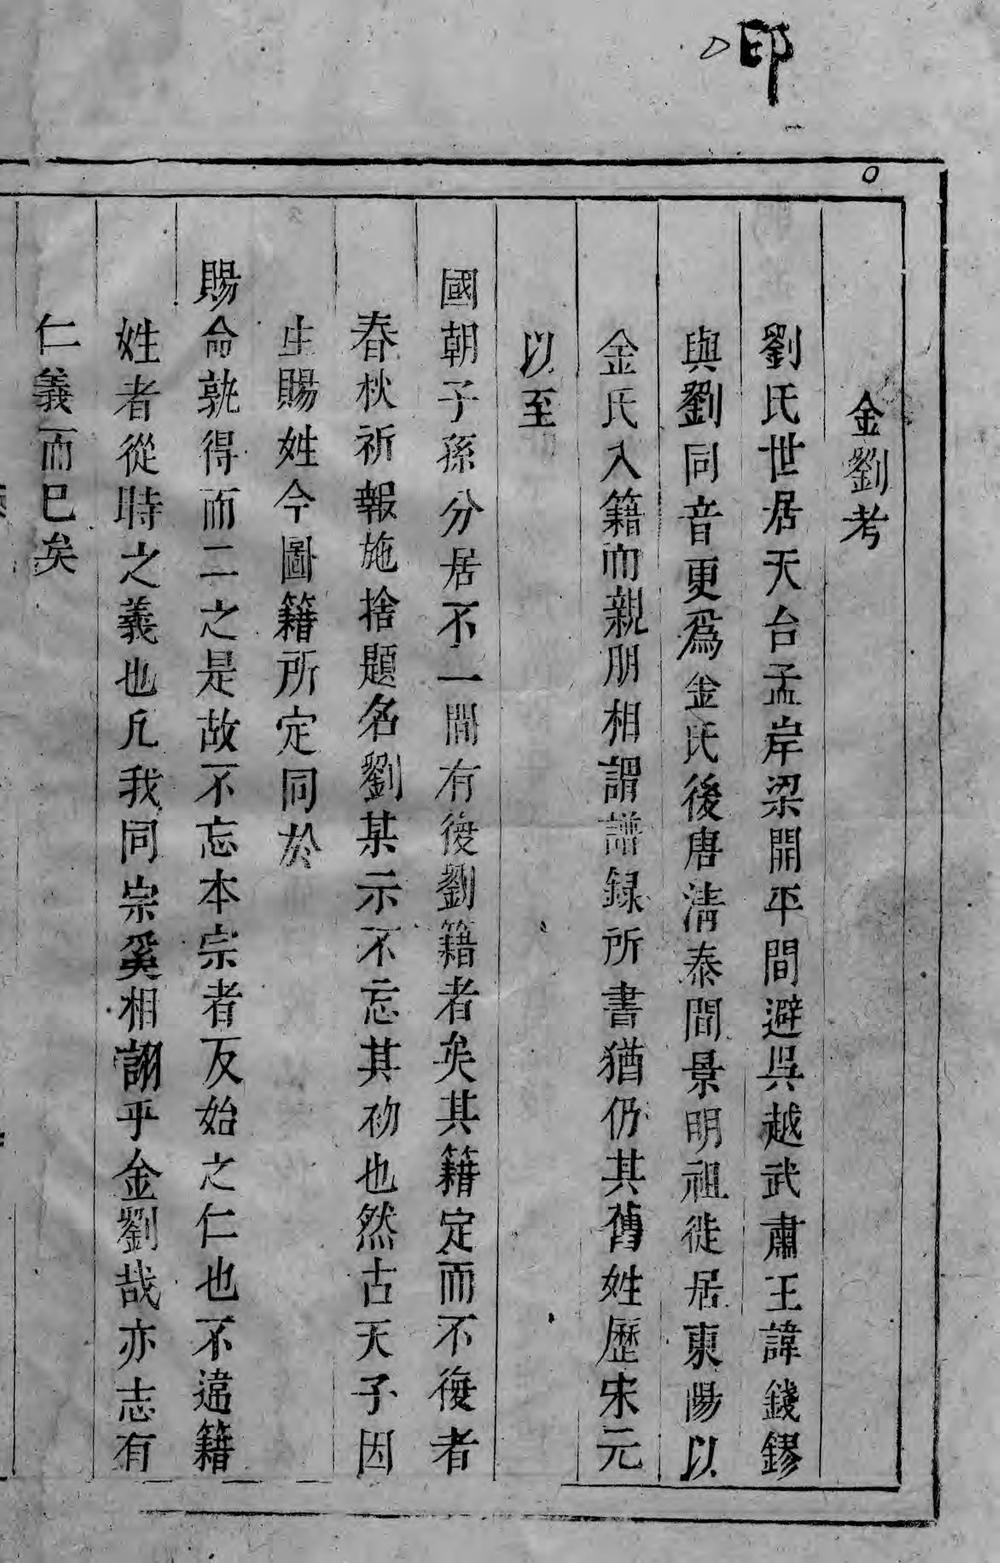 印
金劉考
劉氏世居天台孟岸梁開平間避吳越武肅王諱錢鏐
與劉同音更爲金氏後唐淸泰間景明祖徙居東陽以
金氏入籍而親朋相謂譜録所書猶仍其舊姓歷宋元
以至
國朝子孫分居不一間有復劉籍者矣其籍定而不復者
春秋祈報施捨題名劉某示不忘其初也然古天子因
生賜姓今圖籍所定同於
賜命孰得而二之是故不忘本宗者反始之仁也不違籍
姓者從時之義也凡我同宗奚相謝乎金劉哉亦志有
仁義而已矣